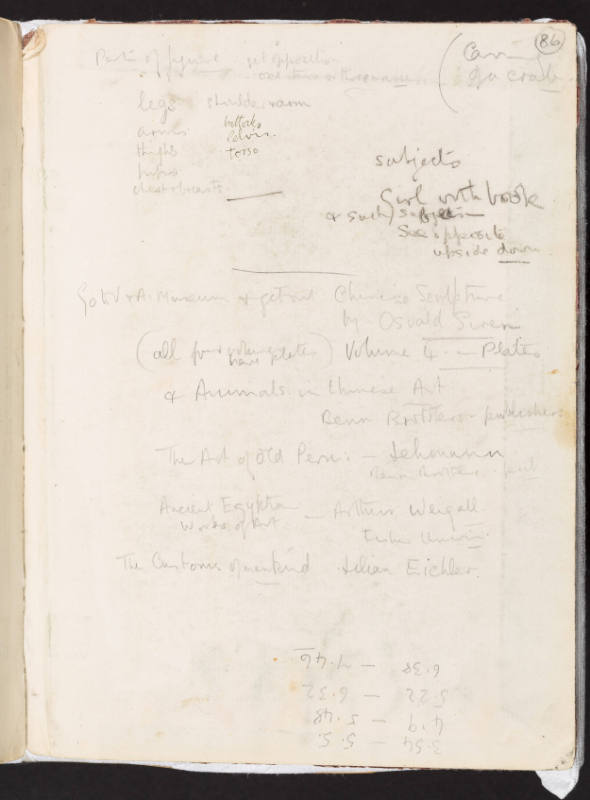 86
Parts of figure get opposition
Carve
in crab
legs shoulder room
arms buttocks
pelvis
thighs torso
hips
chest & breasts
subjects
Girl with book
& such) subjects
See opposite
upside down
Go to V & A. Museum & get out Chinese Sculpture
by Osvald Siren
(all four volumes
have plates) Volume 4 - Plates
& Animals in Chinese Art
Benn Brothers - publishers
The Art of Old Peru: - Lehmann
Benn Brothers - publ
Ancient Egyptian
Works of Art - Arthur Weigall
Fisher Unwin
The Customs of mankind Lilian Eichler.
3.54 - 5.5
4.9 - 5.48
5.22 - 6.32
6.38 - 7.46